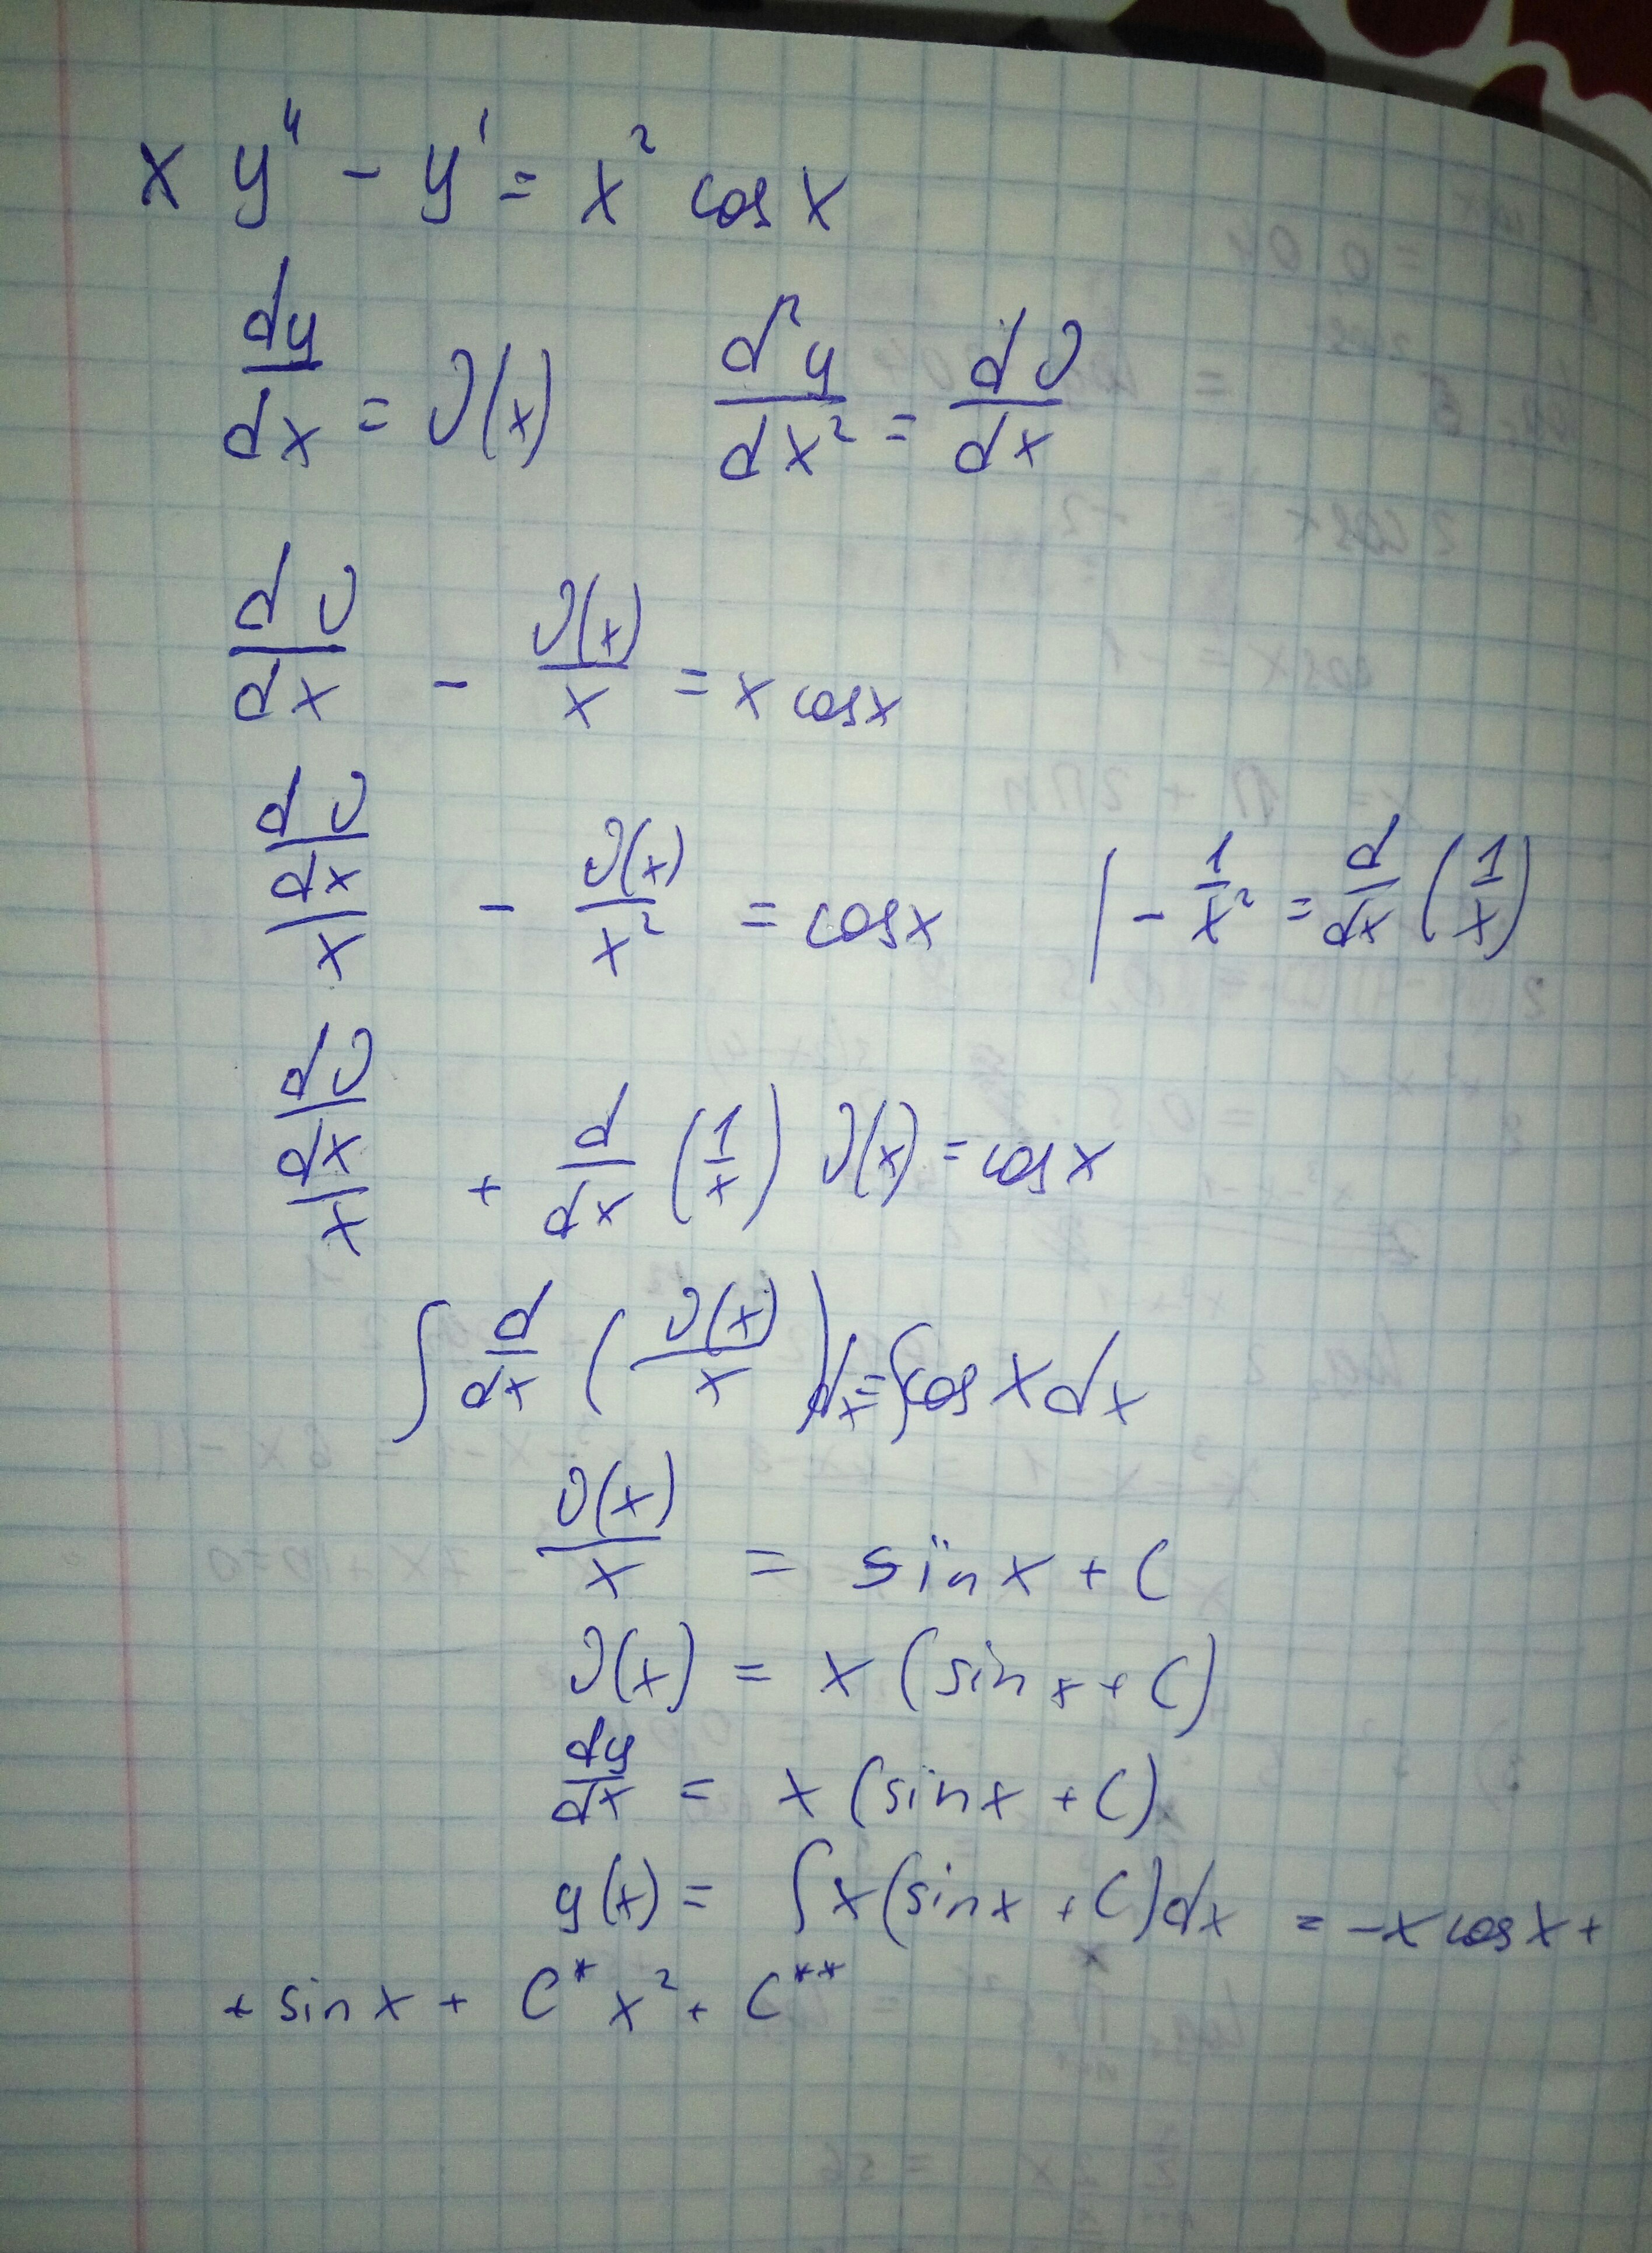 x y'' - y' = x² cos x
dy/dx = υ(x)    d²y/dx² = dυ/dx
dυ/dx - υ(x)/x = x cos x
(dυ/dx)/x - υ(x)/x² = cos x    | - 1/x² = d/dx (1/x)
(dυ/dx)/x + d/dx (1/x) υ(x) = cos x
∫ d/dx (υ(x)/x) dx = ∫ cos x dx
υ(x)/x = sin x + C
υ(x) = x (sin x + C)
dy/dx = x (sin x + C)
y(x) = ∫ x (sin x + C) dx = -x cos x +
+ sin x + C* x² + C**